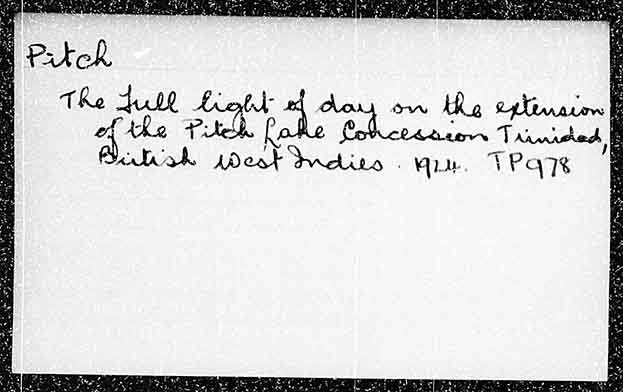 Pitch
The full light of day on the extension
of the Pitch Lake Concession Trinidad,
British West Indies. 1924. TP978